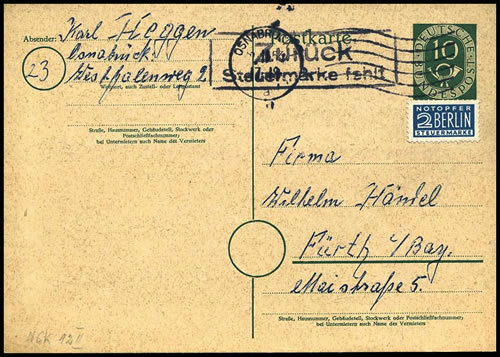 Absender: Karl Heggen
Osnabrück
23
Westhalenweg 2
Wohnort, auch Zustell- oder Leitpostamt
Straße, Hausnummer, Gebäudeteil, Stockwerk oder
Postschließfachnummer;
bei Untermietern auch Name des Vermieters
Postkarte
OSNABRÜ
Zurück
Steuermarke fehlt
DEUTSCHE
10
BUNDESPOST
NOTOPFER
2 BERLIN
STEUERMARKE
Firma
Wilhelm Händel
Fürth i/Bay.
Maistraße 5.
Straße, Hausnummer, Gebäudeteil, Stockwerk oder Postschließfachnummer;
bei Untermietern auch Name des Vermieters